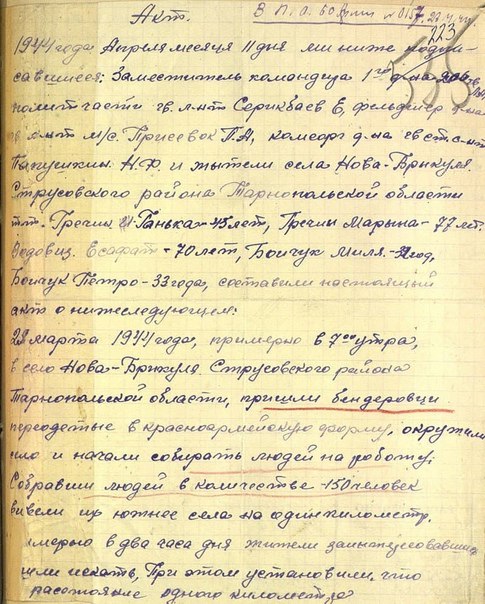 Акт. В П.О. 60 армии №0157. 28.4.44
223
1944 года Апреля месяца 11 дня мы ниже подпи-
савшиеся: Заместитель командира 1го д-на
политчасти гв. л-нт Серикбаев Е, фельдшер д-на
л-нт м/с. Присевок Г.А, комсорг д-на гв ст. с-нт
Н.Ф. и жители села Нова-Брыкуля.
Струсовского района Тарнопольской области
т.т. Гречин Ганька-45 лет, Гречин Марына-77 лет.
Водовиз. Есафат-70 лет, Бойчук Миля.-32 год,
Бойчук Петро-33 года, составили настоящий
акт о нижеследующем:
28 марта 1944 года, примерно в 7 00 утра,
в село Нова-Брыкуля Струсовского района
Тарнопольской области, пришли бендеровци
переодетые в красноармейскую форму, окружили
село и начали собирать людей на роботу.
Собравши людей в количестве -150 человек
вивели их южнее села на один километр.
имерно в два часа дня жители заинтересовавшись
шли искать, При этом установили, что
расстояние одного километра